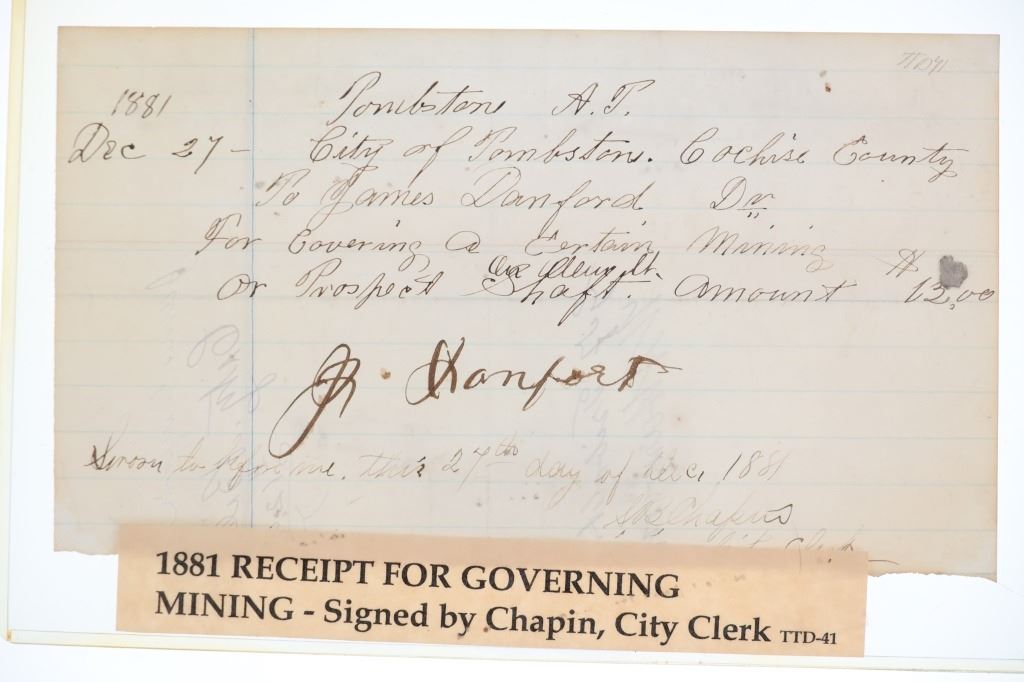 TTD41
1881
Tombston A.T.
Dec 27 - City of Tombston. Cochise County
To James Danford Dr
For Covering a Certain Mining $
Or Prospect Shaft. Amount 13.00
J. Hanford
Sworn to before me, this 27th day of Dec, 1881
S.B. Chapin
1881 RECEIPT FOR GOVERNING
MINING - Signed by Chapin, City Clerk TTD-41